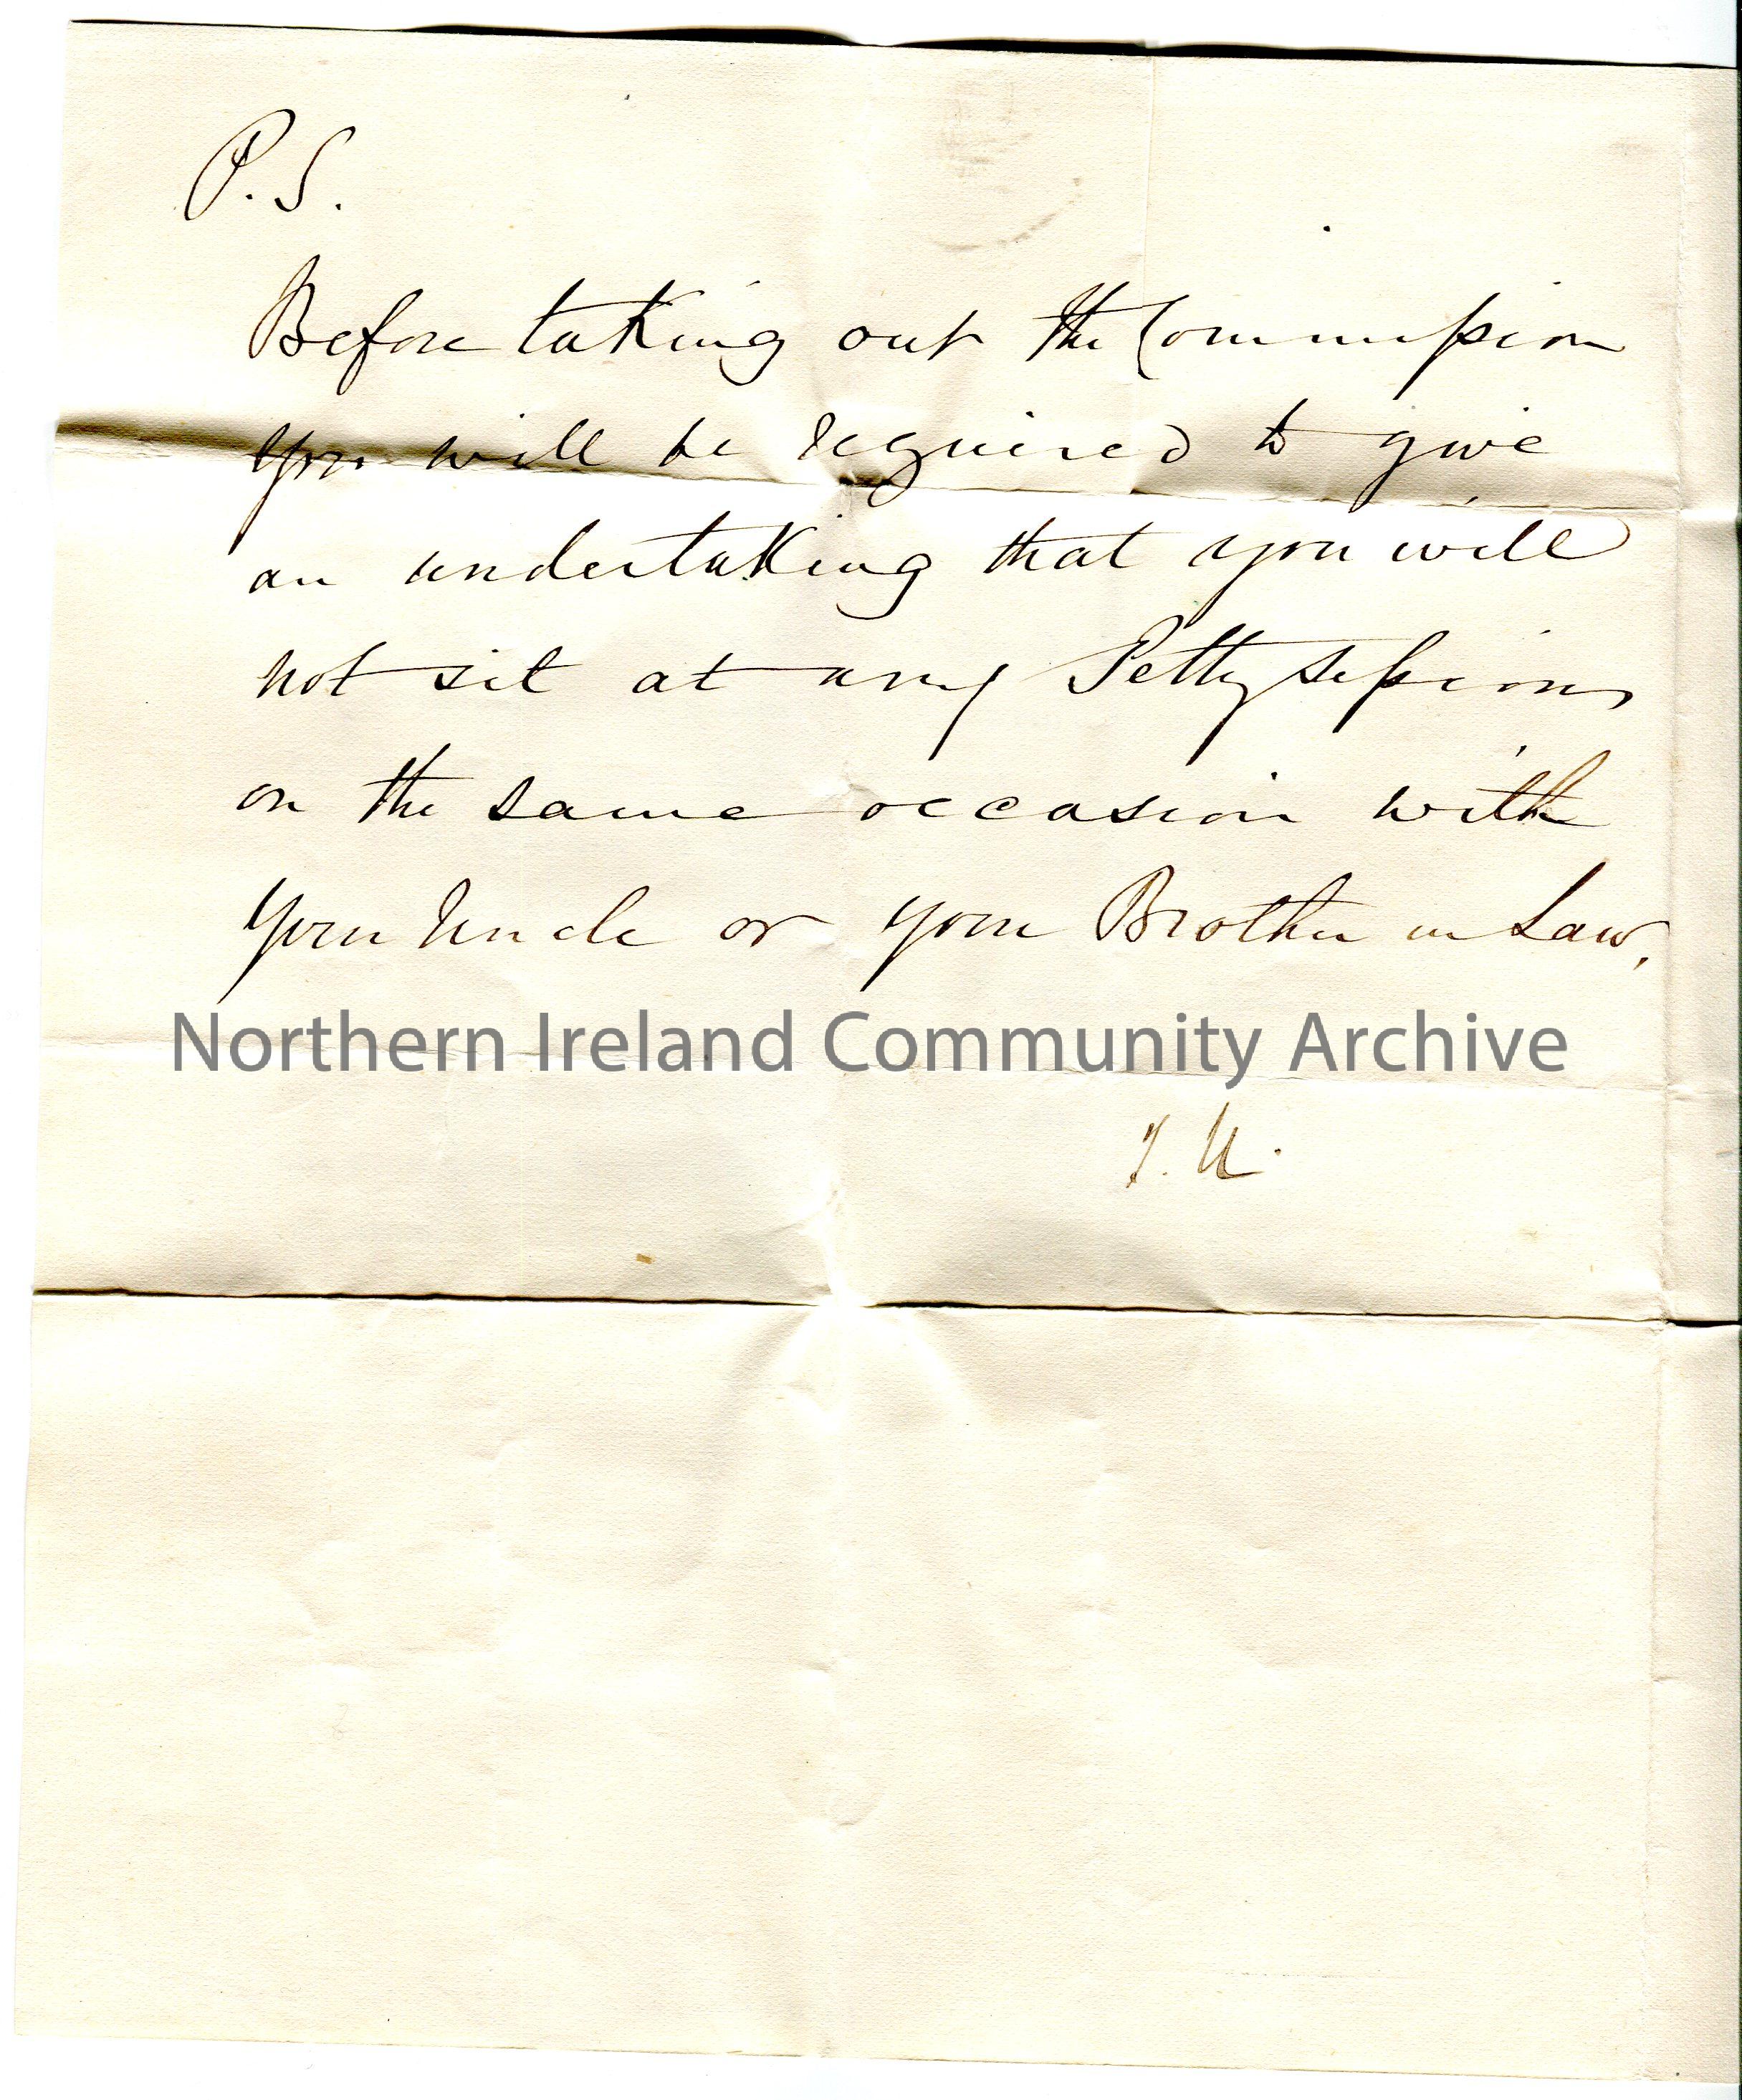 P.S.
Before taking out the Commission
you will be required to give
an undertaking that you will
not sit at any Petty Sessions
on the same occasion with
your Uncle or your Brother in Law.
Northern Ireland Community Archive